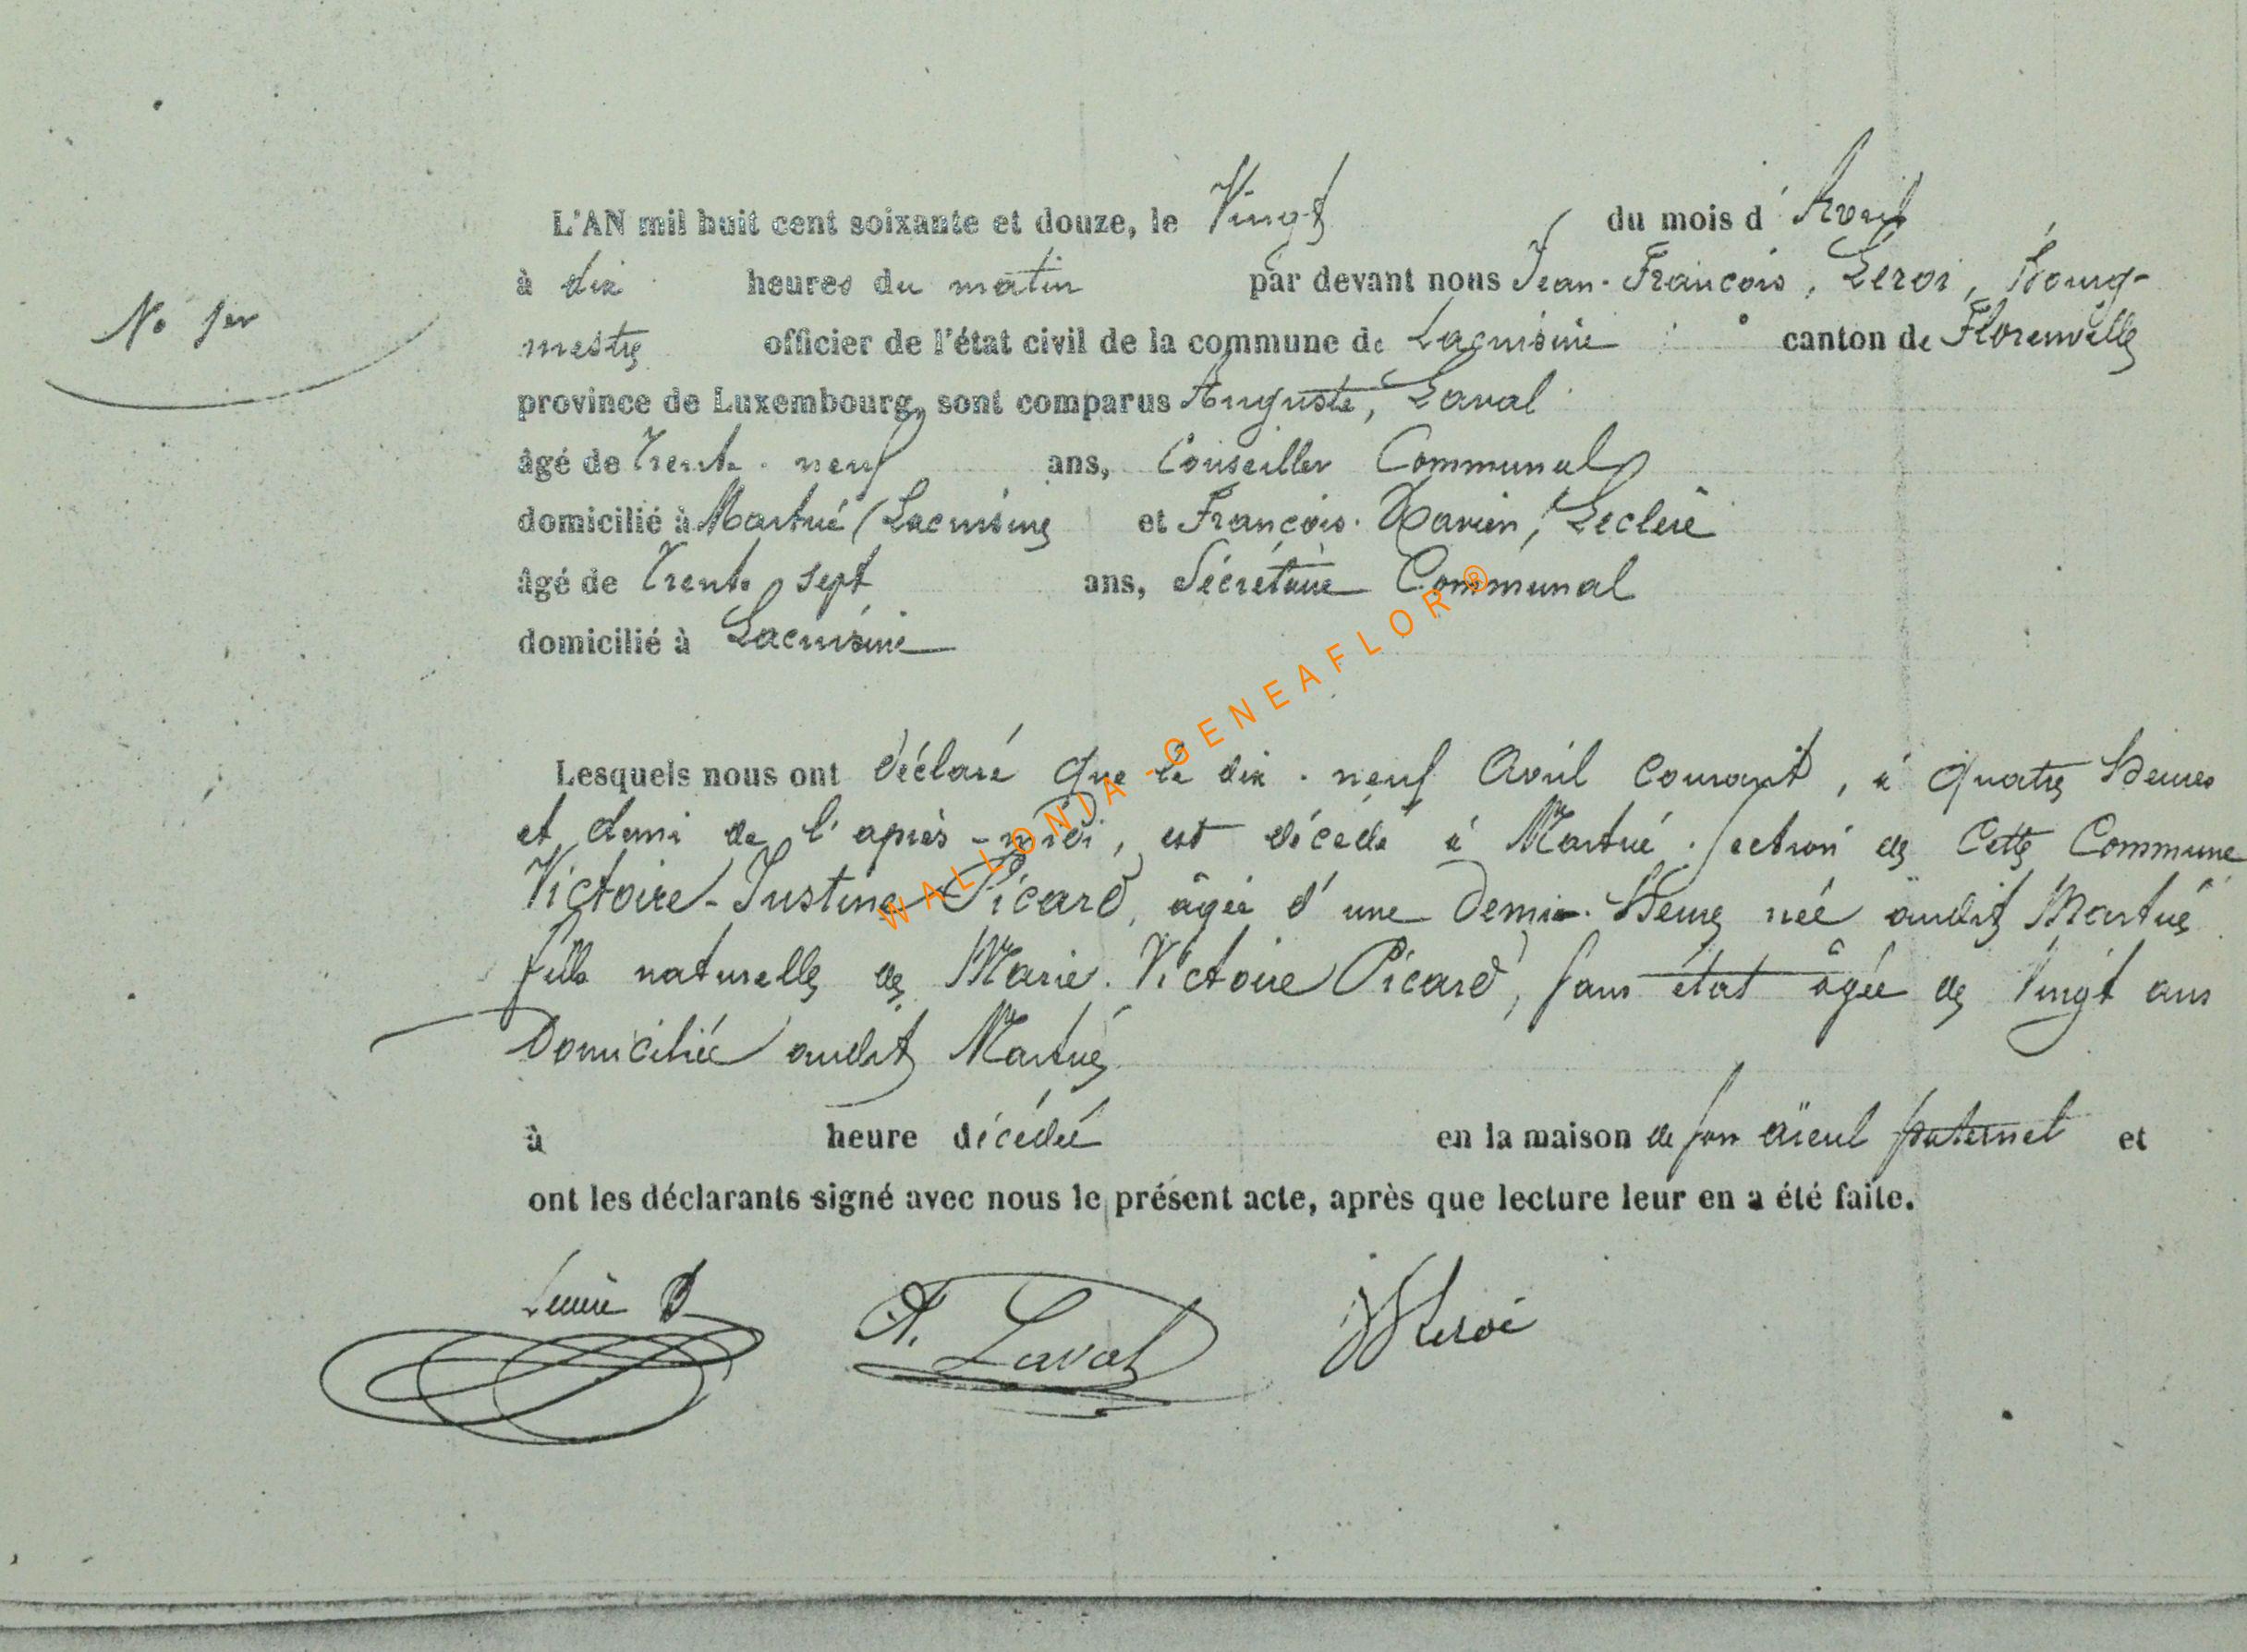 L'AN mil huit cent soixante et douze, le Vingt du mois d'Avril
à dix heures du matin par devant nous Jean-François, Leroi, Bourg-
N° 1er
mestre officier de l'état civil de la commune de Lacuisine canton de Florenville
province de Luxembourg, sont comparus Auguste, Laval
âgé de Trente-neuf ans, Conseiller Communal
domicilié à Martué (Lacuisine et François-Xavier, Leclère
âgé de Trente sept ans, Sécrétaire Communal
domicilié à Lacuisine
Lesquels nous ont déclaré que le dix-neuf Avril courant, à quatre heures
et demi de l'après-midi, est décédé à Martué section de Cette Commune
Victoire-Justine Picard, âgée d'une Demie-Heure née audit Martué
fille naturelle de Marie-Victoire Picard, sans état âgée de Vingt ans
Domiciliée audit Martué
à heure décédée en la maison de son aïeul paternel et
ont les déclarants signé avec nous le présent acte, après que lecture leur en a été faite.
A. Laval Leroi
WALLONIA-GENEAFLOR®